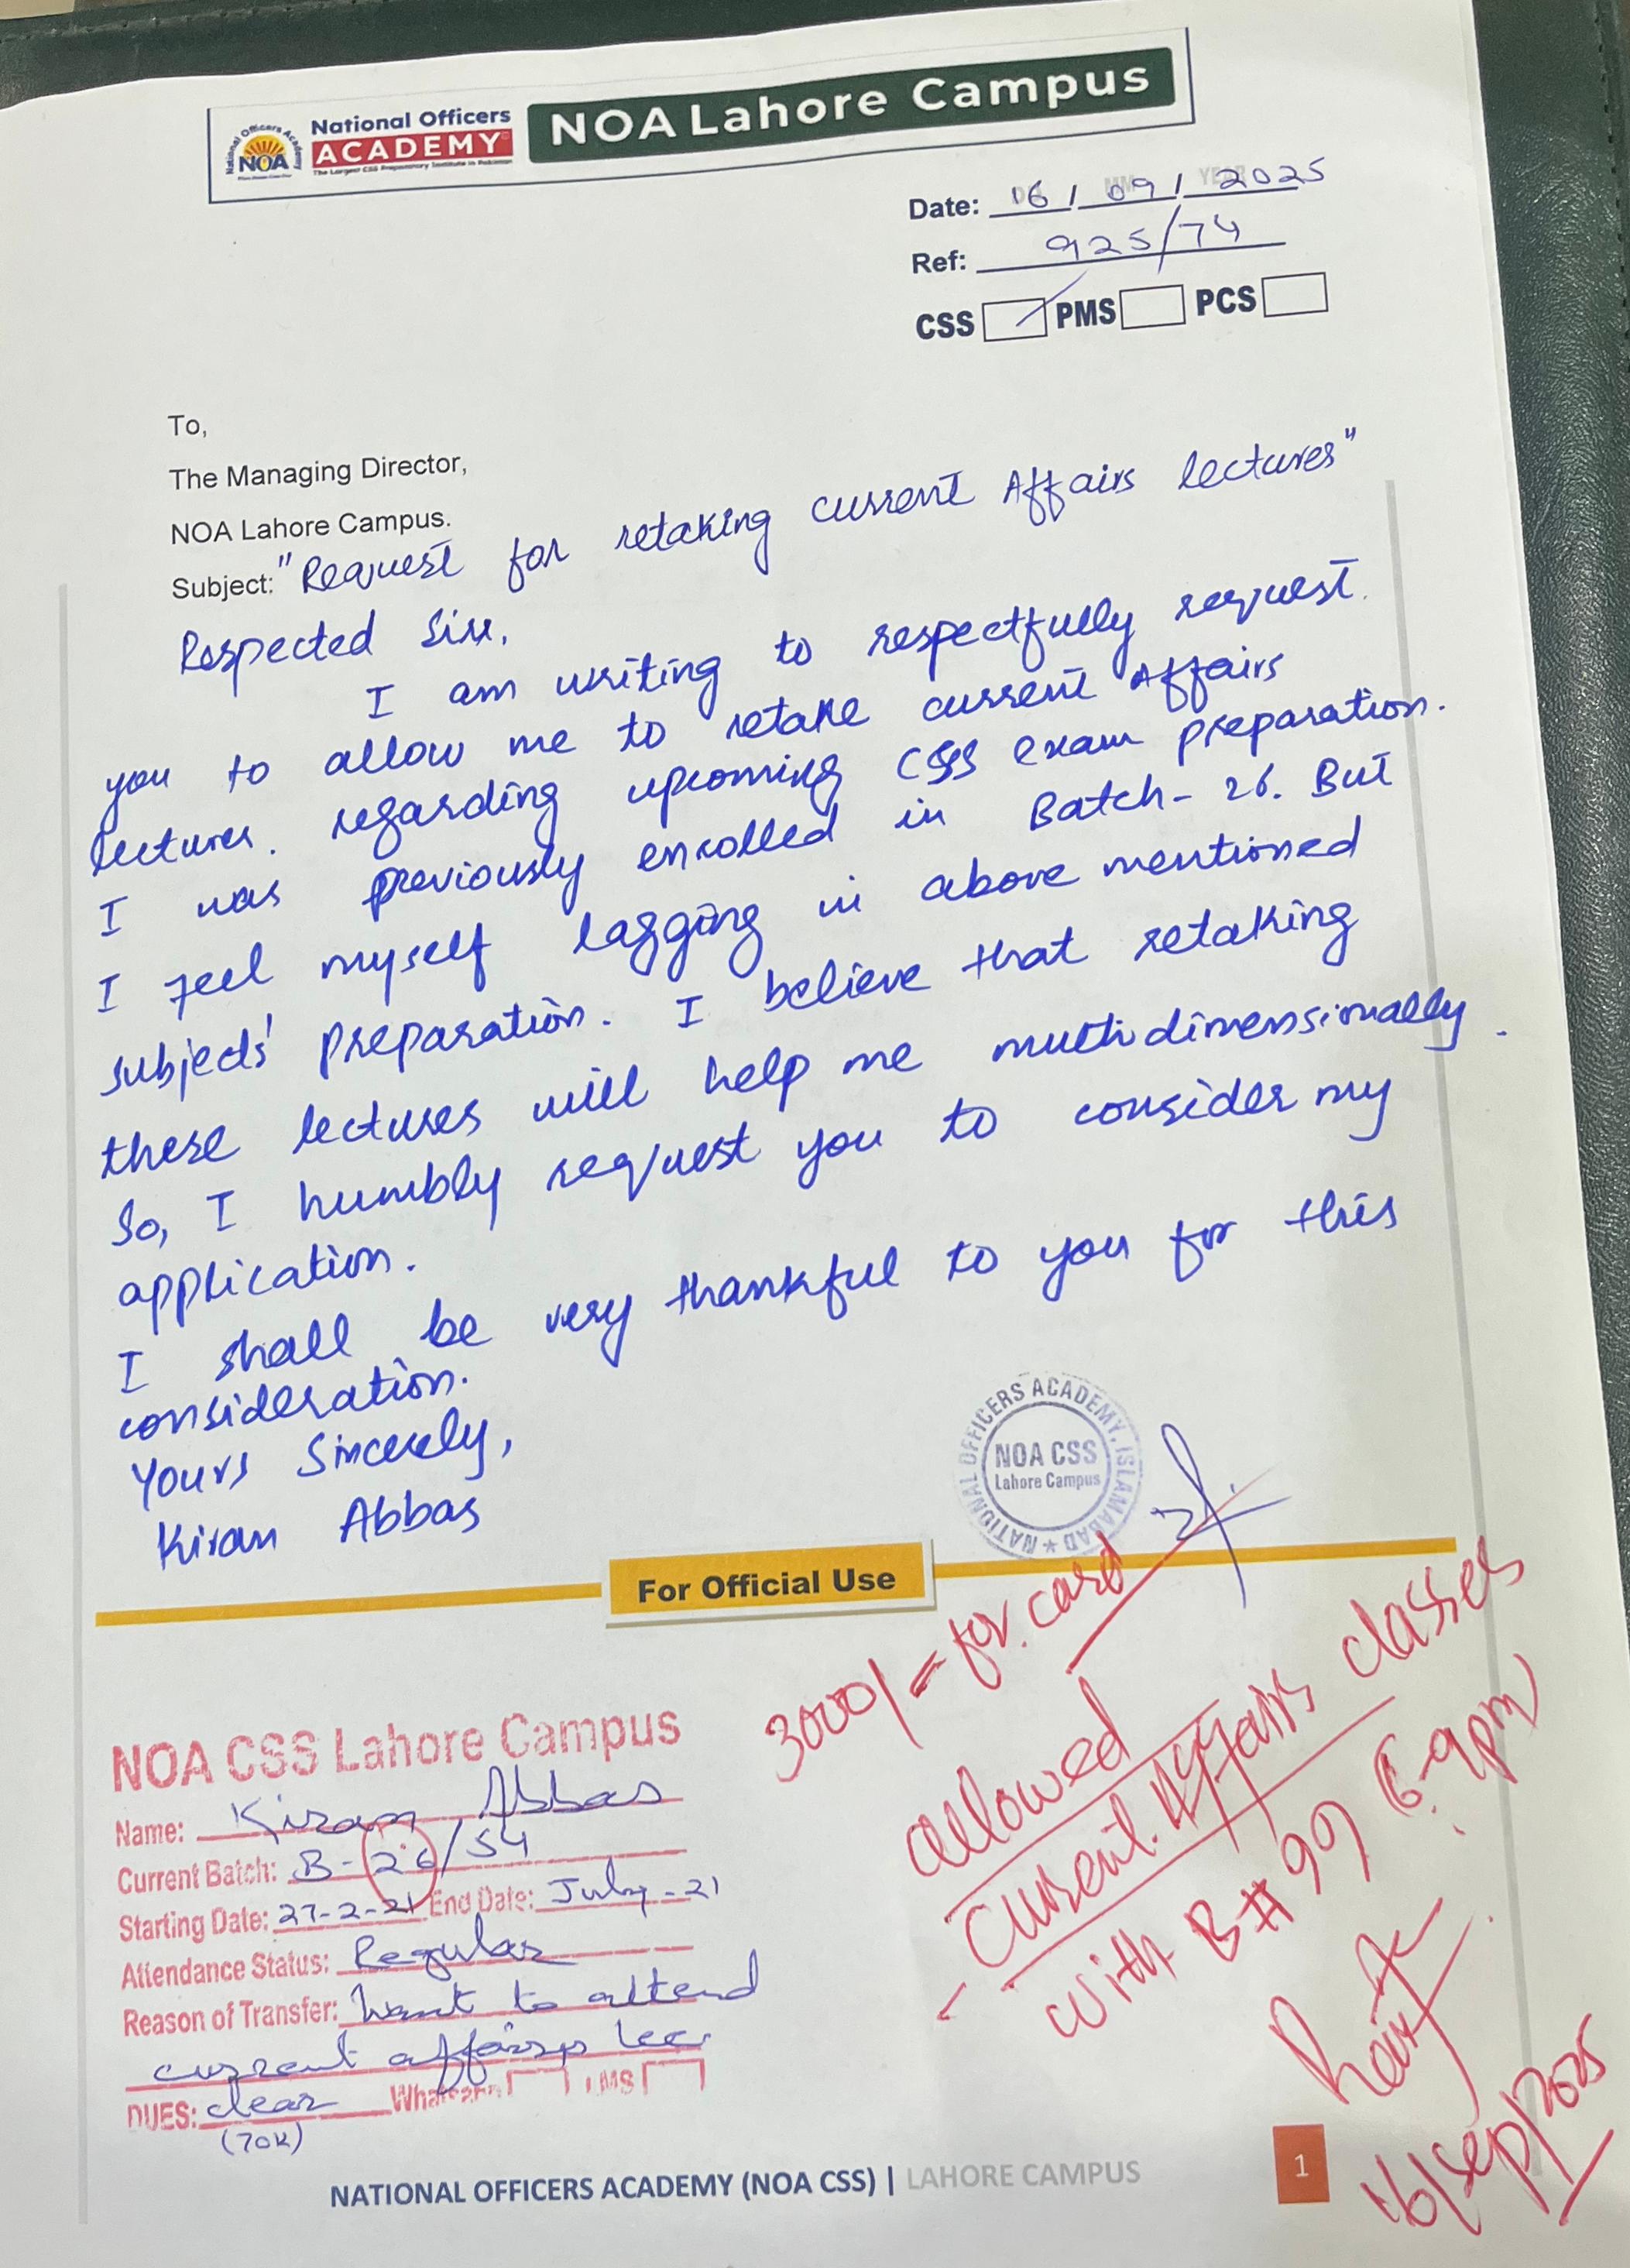 National Officers
ACADEMY
The Largest CSS Preparatory Institute in Pakistan
National Officers Academy
NOA
NOA Lahore Campus
Date: 16 / 09 / 2025
Ref: 925/74
CSS PMS PCS
To,
The Managing Director,
NOA Lahore Campus.
Subject: "Request for retaking current Affairs lectures"
Respected Sir,
I am writing to respectfully request
you to allow me to retake current Affairs
lectures. regarding upcoming CSS exam preparation.
I was previously enrolled in Batch-26. But
I feel myself lagging in above mentioned
subjects' preparation. I believe that retaking
these lectures will help me multidimensionally.
So, I humbly request you to consider my
application.
I shall be very thankful to you for this
consideration.
Yours Sincerely,
Kiran Abbas
NATIONAL OFFICERS ACADEMY, ISLAMABAD
NOA CSS
Lahore Campus
For Official Use
3000/= for. card
allowed
- Current. Affairs classes
with B# 99 (6-9pm)
16/sep/2025
NOA CSS Lahore Campus
Name: Kiran Abbas
Current Batch: B-26/54
Starting Date: 27-2-21 End Date: July-21
Attendance Status: Regular
Reason of Transfer: Want to attend
current affairs lec
DUES: clear Whatsapp LMS
(70K)
NATIONAL OFFICERS ACADEMY (NOA CSS) | LAHORE CAMPUS
1